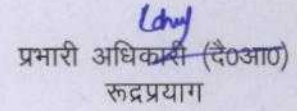 प्रभारी अधिकारी (दै०आ०)
रूद्रप्रयाग